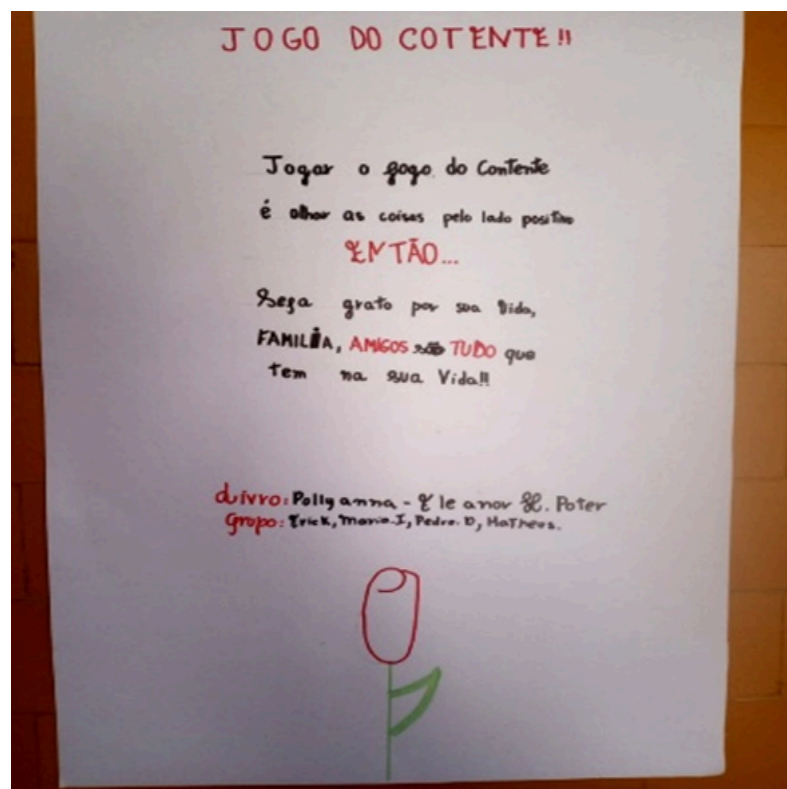 JOGO DO COTENTE!!
Jogar o gogo do Contente
é olhar as coisas pelo lado positivo
ENTÃO...
Sega grato por sua Vida,
FAMILIA, AMIGOS são TUDO que
tem na sua Vida!!
Livro: Pollyanna - Eleanor H. Poter
Grupo: Erick, Maria.I, Pedro.D, Matheus.